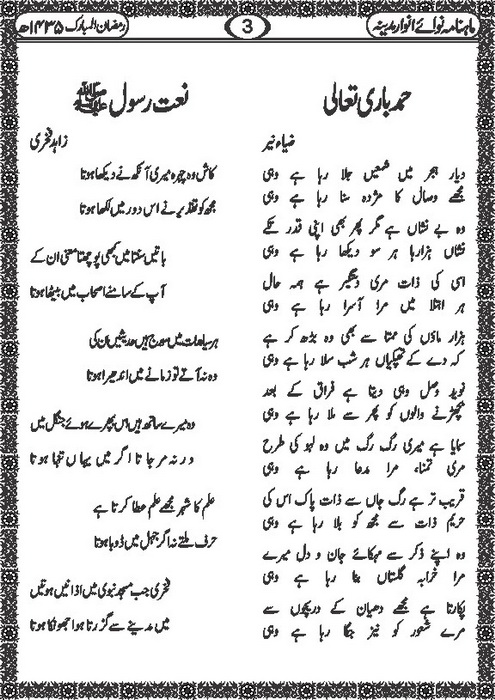 ماہنامہ نوائے انوار مدینہ
3
رمضان المبارک ۱۴۳۵ھ
حمد باری تعالیٰ
ضیاء نیر
دیار ہجر میں شمعیں جلا رہا ہے وہی
مجھے وصال کا مژدہ سنا رہا ہے وہی
وہ بے نشاں ہے مگر پھر بھی اپنی قدرت کے
نشاں ہزارہا ہر سو دکھا رہا ہے وہی
اسی کی ذات مری دستگیر ہے ہمہ حال
ہر ابتلا میں مرا آسرا رہا ہے وہی
ہزار ماؤں کی ممتا سے بھی وہ بڑھ کر ہے
کہ دے کے تھپکیاں ہر شب سلا رہا ہے وہی
نوید وصل وہی دیتا ہے فراق کے بعد
بچھڑنے والوں کو پھر سے ملا رہا ہے وہی
سمایا ہے میری رگ رگ میں وہ لہو کی طرح
مری تمنا، مرا مدعا رہا ہے وہی
قریب تر ہے رگ جاں سے ذات پاک اس کی
حریم ذات سے مجھ کو بلا رہا ہے وہی
وہ اپنے ذکر سے مہکائے جان و دل میرے
مرا خرابہ گلستاں بنا رہا ہے وہی
پکارتا ہے مجھے دھیان کے دریچوں سے
مرے شعور کو نیر جگا رہا ہے وہی
نعت رسول ﷺ
زاہد فخری
کاش وہ چہرہ میری آنکھ نے دیکھا ہوتا
مجھ کو تقدیر نے اس دور میں لکھا ہوتا
باتیں سنتا میں کبھی پوچھتا معنی ان کے
آپ کے سامنے اصحاب میں بیٹھا ہوتا
ہر سیاہ رات میں سورج ہیں حدیثیں ان کی
وہ نہ آتے تو زمانے میں اندھیرا ہوتا
وہ میرے ساتھ ہیں اس بپھرے ہوئے جنگل میں
ورنہ مر جاتا اگر میں یہاں تنہا ہوتا
علم کا شہر مجھے علم عطا کرتا ہے
حرف ملتے نہ اگر جہل میں ڈوبا ہوتا
فخری جب مسجد نبوی میں اذانیں ہوتیں
میں مدینے سے گزرتا ہوا جھونکا ہوتا